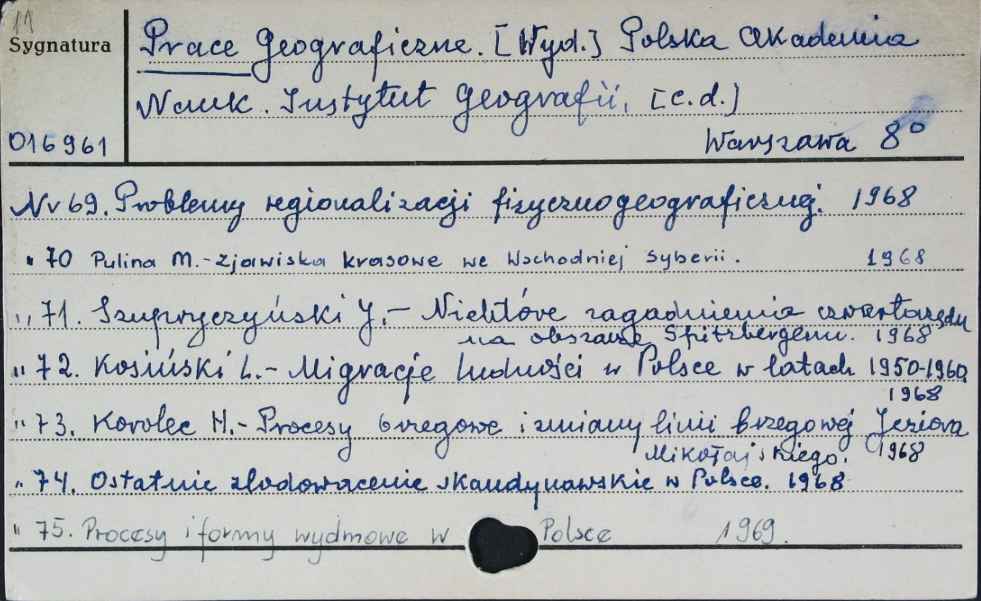 11
Sygnatura
Prace Geograficzne. [Wyd.] Polska Akademia
Nauk. Instytut Geografii. [c.d.]
016961
Warszawa 8°
Nr 69. Problemy regionalizacji fizycznogeograficznej. 1968
" 70 Pulina M.-Zjawiska krasowe we Wschodniej Syberii. 1968
,, 71. Szupryczyński J.- Niektóre zagadnienia czwartorzędu
na obszarze Spitzbergenu. 1968
" 72. Kosiński L.- Migracje ludności w Polsce w latach 1950-1960
1968
" 73. Korolec H.- Procesy brzegowe i zmiany linii brzegowej Jeziora
Mikołajskiego. 1968
" 74. Ostatnie zlodowacenie skandynawskie w Polsce. 1968
" 75. Procesy i formy wydmowe w Polsce 1969.